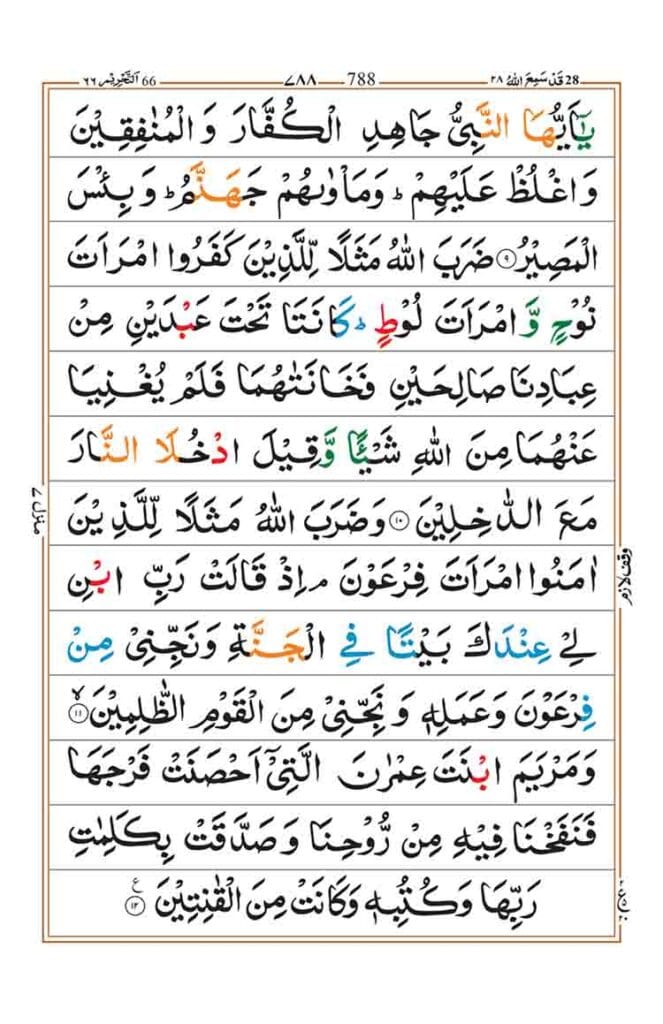 28 قَدْ سَمِعَ اللّٰهُ ٢٨
788 ٧٨٨
66 اَلتَّحْرِيْم ٦٦
يٰۤاَيُّهَا النَّبِىُّ جَاهِدِ الْكُفَّارَ وَ الْمُنٰفِقِيْنَ
وَ اغْلُظْ عَلَيْهِمْ ؕ وَمَاْوٰىهُمْ جَهَنَّمُ ؕ وَ بِئْسَ
الْمَصِيْرُ ۝٩ ضَرَبَ اللّٰهُ مَثَلًا لِّلَّذِيْنَ كَفَرُوا امْرَاَتَ
نُوْحٍ وَّ امْرَاَتَ لُوْطٍ ؕ كَانَتَا تَحْتَ عَبْدَيْنِ مِنْ
عِبَادِنَا صَالِحَيْنِ فَخَانَتٰهُمَا فَلَمْ يُغْنِيَا
عَنْهُمَا مِنَ اللّٰهِ شَيْـًٔا وَّقِيْلَ ادْخُلَا النَّارَ
مَعَ الدّٰخِلِيْنَ ۝١٠ وَضَرَبَ اللّٰهُ مَثَلًا لِّلَّذِيْنَ
اٰمَنُوا امْرَاَتَ فِرْعَوْنَ ۘ اِذْ قَالَتْ رَبِّ ابْنِ
لِىْ عِنْدَكَ بَيْتًا فِى الْجَنَّةِ وَنَجِّنِىْ مِنْ
فِرْعَوْنَ وَعَمَلِهٖ وَ نَجِّنِىْ مِنَ الْقَوْمِ الظّٰلِمِيْنَ ۙ‏۝١١
وَمَرْيَمَ ابْنَتَ عِمْرٰنَ الَّتِىْۤ اَحْصَنَتْ فَرْجَهَا
فَنَفَخْنَا فِيْهِ مِنْ رُّوْحِنَا وَ صَدَّقَتْ بِكَلِمٰتِ
رَبِّهَا وَكُتُبِهٖ وَكَانَتْ مِنَ الْقٰنِتِيْنَ ۝١٢ ع
وقف لازم
منزل ٧